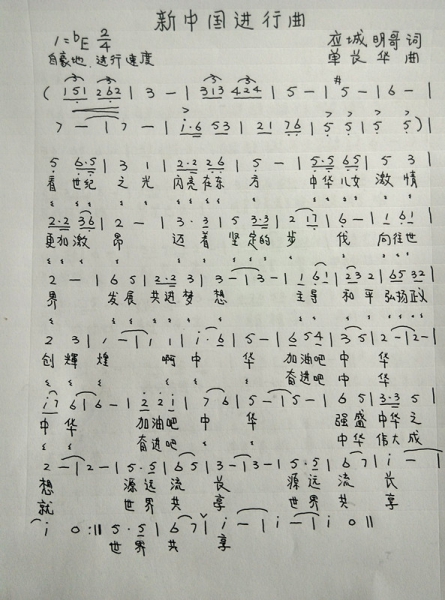 新中国进行曲
1=ᵇE 2/4 应城 明哥 词
自豪地.进行速度 单长华 曲
( 151 262 | 3 — | 313 424 | 5 — | #5 — | 6 — |
7 — | 7 — | i·6 53 | 21 76 | 5 5 | 5 5 ) |
5 6·5 | 3 1 | 2·2 26 | 5 — | 5·5 65 | 5 3 |
看 世纪 之 光 闪亮在东 方 中华儿女 激 情
2·2 36 | 2 — | 3 · 3 | 5 3·3 | 2 17 | 6 — | 1 61 |
更加激 昂 迈 着 坚定的 步 伐 向往世
2 — | 6 5 | 2·2 3 | 3 — | 3 — | 1 61 | 23 2 | 65 32 |
界 发展 共进梦 想 主导 和平 弘扬正义
2 3 | 1 — | 1 1 | i·6 | 5 — | 6 5 4 | 3 5 | 2 — | 2 — |
创 辉 煌 啊 中 华 加油吧 中 华
奋进吧 中 华
i 7 6 | 6 — | 2 2 i | 7 6 | 5 — | 5 — | 6 5 | 3·3 5 |
中 华 加油吧 中 华 强盛 中华之
奋进吧 中华 伟大成
2 — | 2 — | 5·5 | 6 5 | 3 — | 3 — | 5·5 | 6 7 | i — |
想 源远 流 长 源远 流 长
就 世界 共 享 世界 共 享
i 0 :|| 5·5 | 6 7 | i — | i — | i 0 ||
世界 共 享